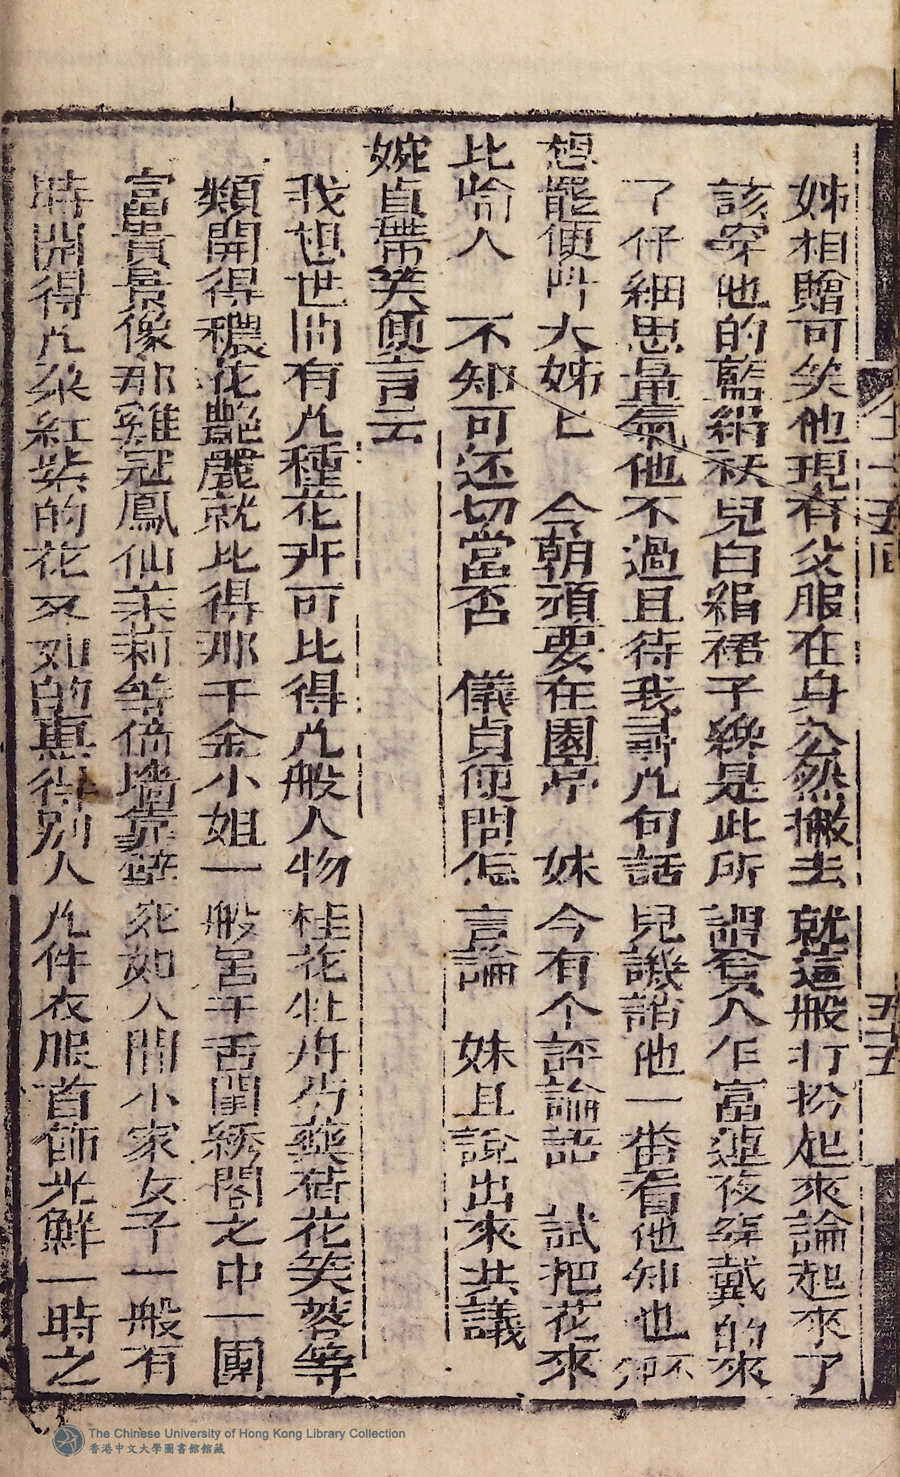 姊相贈可笑他現有父服在身公然搬去就這般打扮起來論起來了
該穿他的藍絹袄兒白絹裙子纔是此所謂貧人乍富連夜穿戴的來
了仔細思量氣他不過且待我尋几句話兒譏誚他一番看他知也不知
想罷便叫大姊匕 今朝須要在園亭 妹今有个評論語 試把花來
比喻人 不知可还切當否 儀貞便問怎言論 妹且說出來共議
婉貞帶笑便言云
我想世間有几種花卉可比得几般人物桂花牡丹芍藥荷花芙蓉等
類開得穠花艷麗就比得那千金小姐一般居于香閨綉閣之中一團
富貴景像那雞冠鳳仙茉莉等倚墻靠壁宛如人間小家女子一般有
時開得几朵紅紫的花又如的惠得別人几件衣服首飾光鮮一時之
十五回
五十五
The Chinese University of Hong Kong Library Collection
香港中文大學圖書館館藏